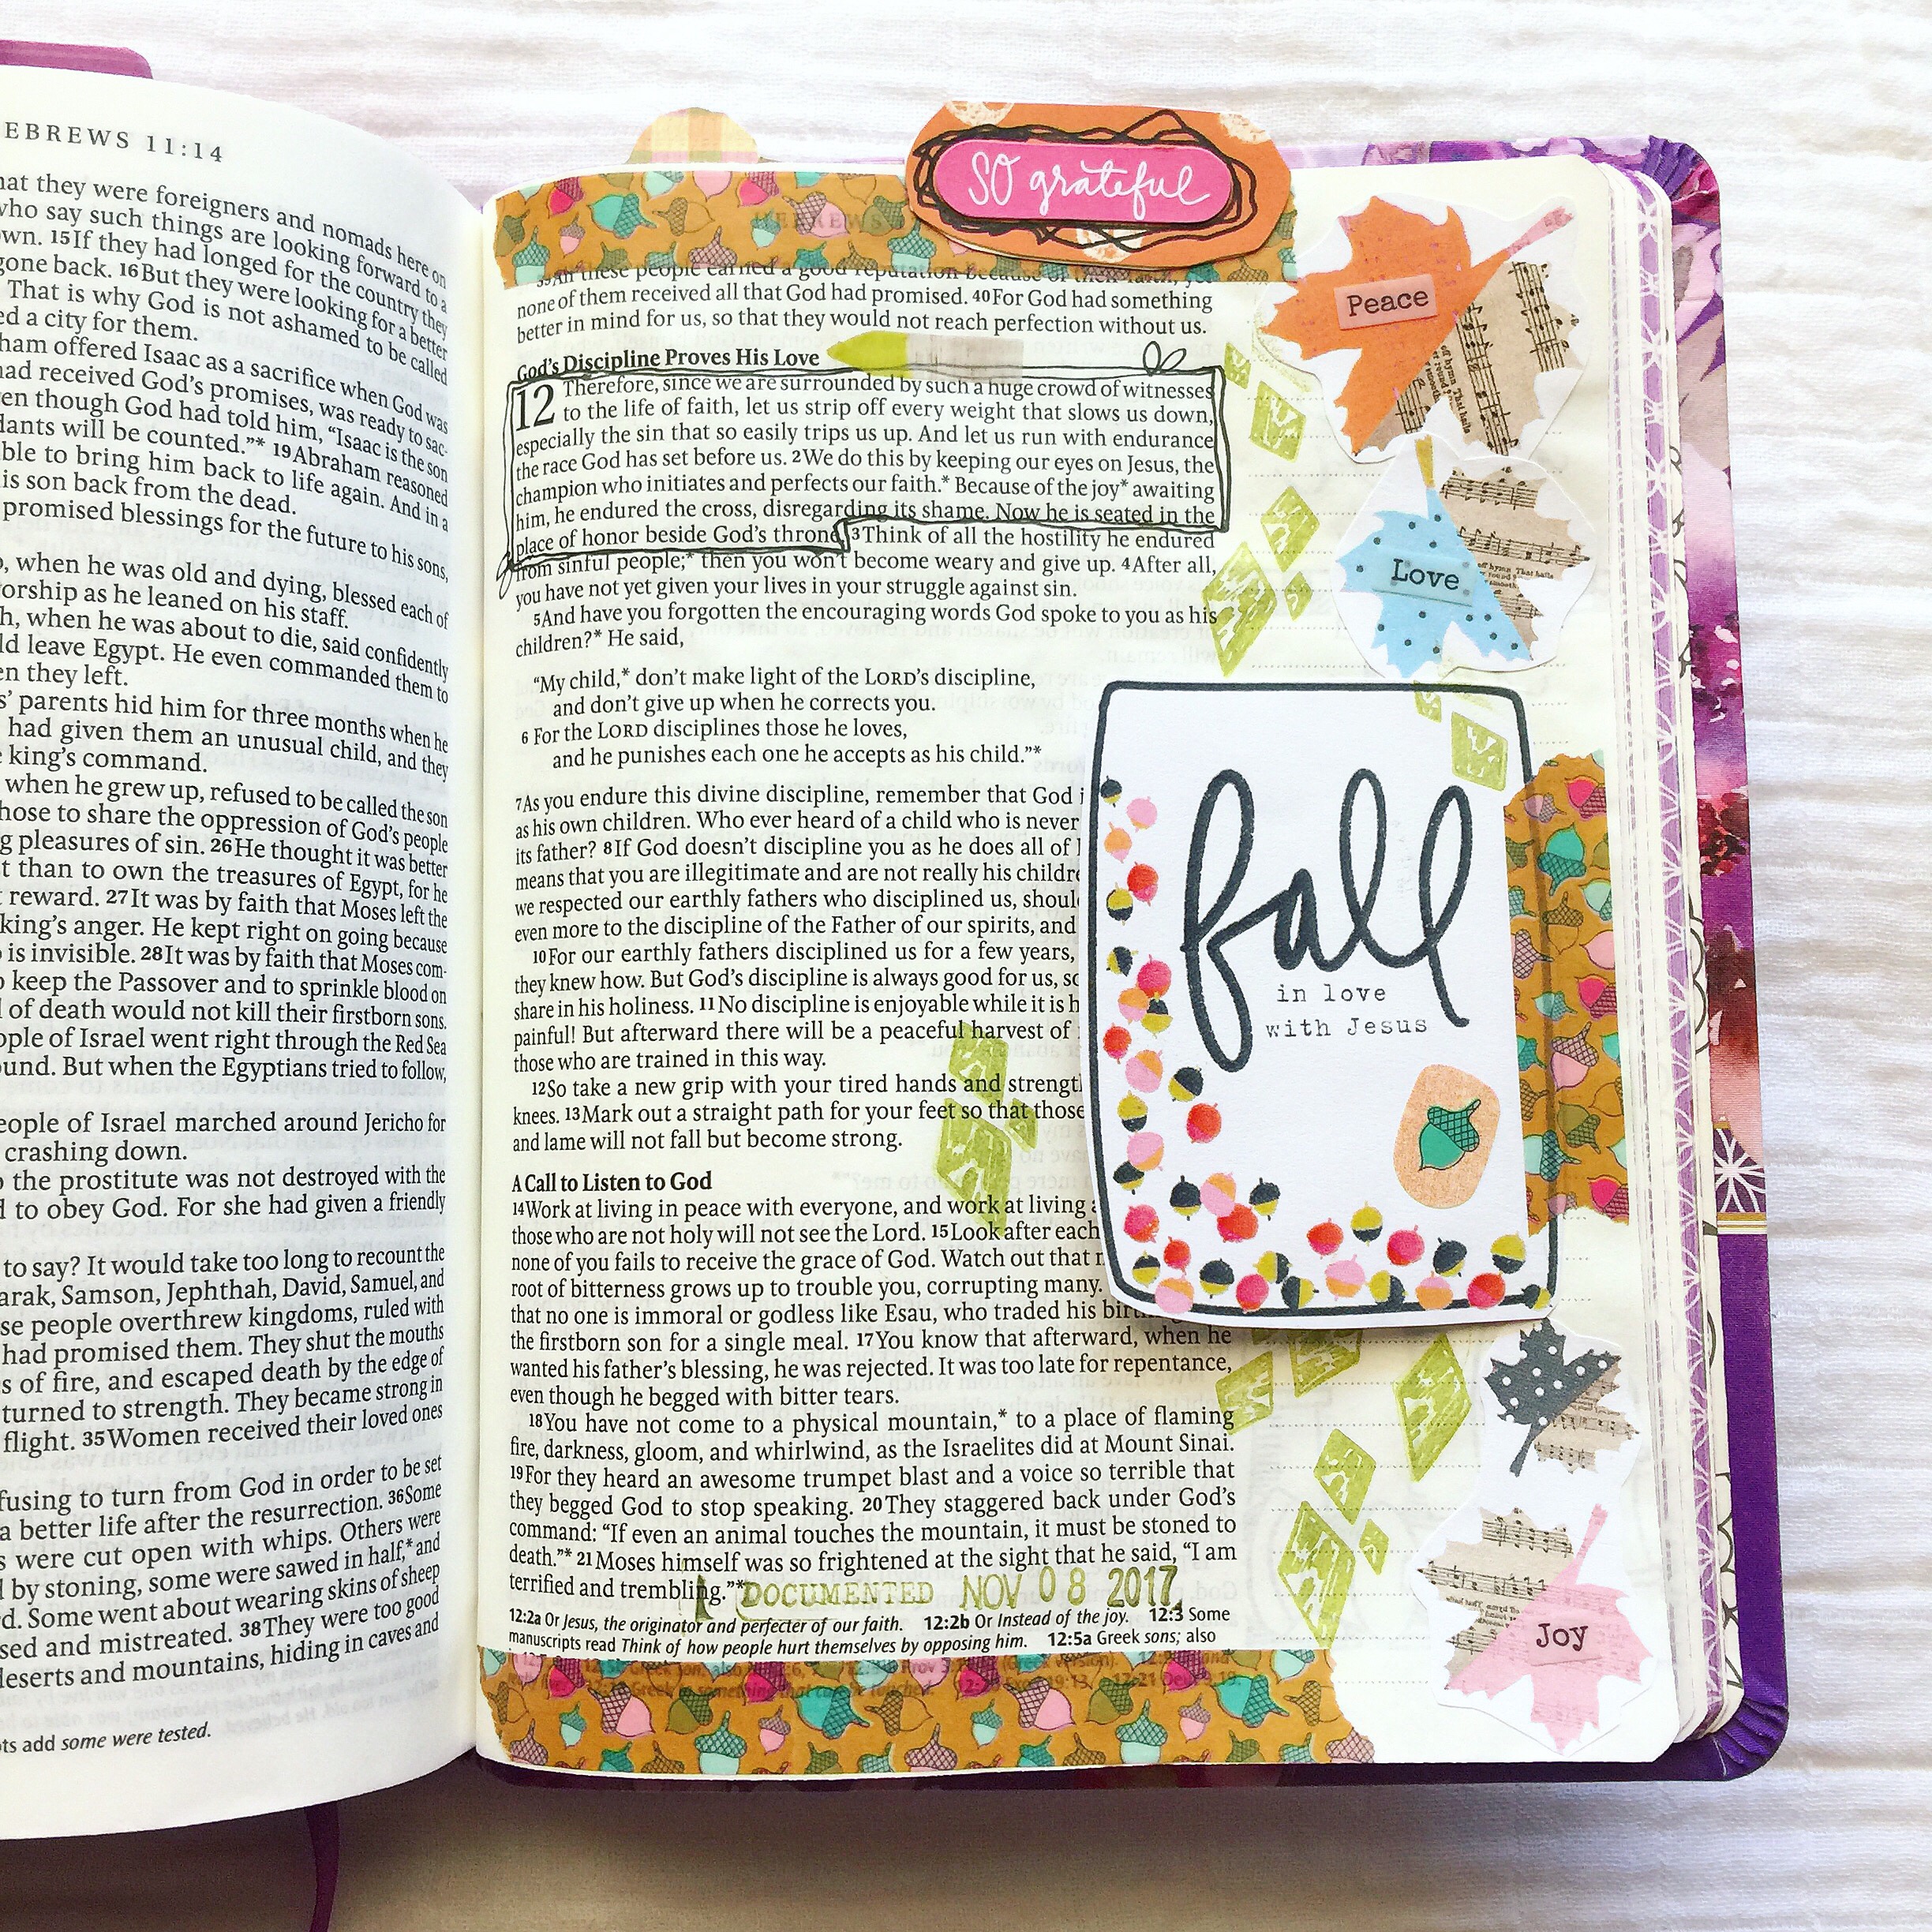 EBREWS 11:14
hat they were foreigners and nomads here on
who say such things are looking forward to a
own. 15If they had longed for the country they
gone back. 16But they were looking for a better
That is why God is not ashamed to be called
ed a city for them.
ham offered Isaac as a sacrifice when God was
had received God's promises, was ready to sac-
en though God had told him, “Isaac is the son
dants will be counted.”* 19Abraham reasoned
ble to bring him back to life again. And in a
is son back from the dead.
promised blessings for the future to his sons,
o, when he was old and dying, blessed each of
orship as he leaned on his staff.
h, when he was about to die, said confidently
ld leave Egypt. He even commanded them to
en they left.
s' parents hid him for three months when he
had given them an unusual child, and they
king's command.
when he grew up, refused to be called the son
hose to share the oppression of God's people
g pleasures of sin. 26He thought it was better
t than to own the treasures of Egypt, for he
reward. 27It was by faith that Moses left the
king's anger. He kept right on going because
is invisible. 28It was by faith that Moses com-
o keep the Passover and to sprinkle blood on
l of death would not kill their firstborn sons.
ople of Israel went right through the Red Sea
ound. But when the Egyptians tried to follow,
eople of Israel marched around Jericho for
crashing down.
the prostitute was not destroyed with the
d to obey God. For she had given a friendly
to say? It would take too long to recount the
arak, Samson, Jephthah, David, Samuel, and
se people overthrew kingdoms, ruled with
had promised them. They shut the mouths
s of fire, and escaped death by the edge of
turned to strength. They became strong in
flight. 35Women received their loved ones
fusing to turn from God in order to be set
a better life after the resurrection. 36Some
s were cut open with whips. Others were
by stoning, some were sawed in half,* and
d. Some went about wearing skins of sheep
sed and mistreated. 38They were too good
deserts and mountains, hiding in caves and
ts add some were tested.
so grateful
39All these people earned a good reputation because of their faith, yet
none of them received all that God had promised. 40For God had something
better in mind for us, so that they would not reach perfection without us.
God's Discipline Proves His Love
12 Therefore, since we are surrounded by such a huge crowd of witnesses
to the life of faith, let us strip off every weight that slows us down,
especially the sin that so easily trips us up. And let us run with endurance
the race God has set before us. 2We do this by keeping our eyes on Jesus, the
champion who initiates and perfects our faith.* Because of the joy* awaiting
him, he endured the cross, disregarding its shame. Now he is seated in the
place of honor beside God's throne. 3Think of all the hostility he endured
from sinful people;* then you won't become weary and give up. 4After all,
you have not yet given your lives in your struggle against sin.
5And have you forgotten the encouraging words God spoke to you as his
children?* He said,
“My child,* don't make light of the LORD's discipline,
and don't give up when he corrects you.
6 For the LORD disciplines those he loves,
and he punishes each one he accepts as his child.”*
7As you endure this divine discipline, remember that God i
as his own children. Who ever heard of a child who is never
its father? 8If God doesn't discipline you as he does all of
means that you are illegitimate and are not really his childre
we respected our earthly fathers who disciplined us, shoul
even more to the discipline of the Father of our spirits, and
10For our earthly fathers disciplined us for a few years,
they knew how. But God's discipline is always good for us, so
share in his holiness. 11No discipline is enjoyable while it is h
painful! But afterward there will be a peaceful harvest of
those who are trained in this way.
12So take a new grip with your tired hands and strengt
knees. 13Mark out a straight path for your feet so that those
and lame will not fall but become strong.
A Call to Listen to God
14Work at living in peace with everyone, and work at living
those who are not holy will not see the Lord. 15Look after each
none of you fails to receive the grace of God. Watch out that
root of bitterness grows up to trouble you, corrupting many.
that no one is immoral or godless like Esau, who traded his birt
the firstborn son for a single meal. 17You know that afterward, when he
wanted his father's blessing, he was rejected. It was too late for repentance,
even though he begged with bitter tears.
18You have not come to a physical mountain,* to a place of flaming
fire, darkness, gloom, and whirlwind, as the Israelites did at Mount Sinai.
19For they heard an awesome trumpet blast and a voice so terrible that
they begged God to stop speaking. 20They staggered back under God's
command: “If even an animal touches the mountain, it must be stoned to
death.”* 21Moses himself was so frightened at the sight that he said, “I am
terrified and trembling.”*
DOCUMENTED NOV 08 2017
12:2a Or Jesus, the originator and perfecter of our faith. 12:2b Or Instead of the joy. 12:3 Some
manuscripts read Think of how people hurt themselves by opposing him. 12:5a Greek sons; also
Peace
Love
fall
in love
with Jesus
Joy